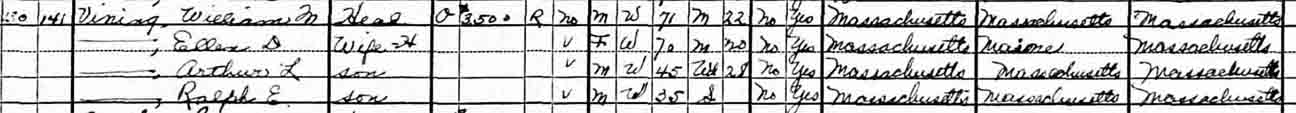 150 141 Vining, William M Head O $3,500 R no M W 71 M 22 No Yes Massachusetts Massachusetts Massachusetts
———, Ellen D Wife-H v F W 70 M 20 No Yes Massachusetts Maine Massachusetts
———, Arthur L son v M W 45 Wd 28 No Yes Massachusetts Massachusetts Massachusetts
———, Ralph E. son v M W 35 S No Yes Massachusetts Massachusetts Massachusetts